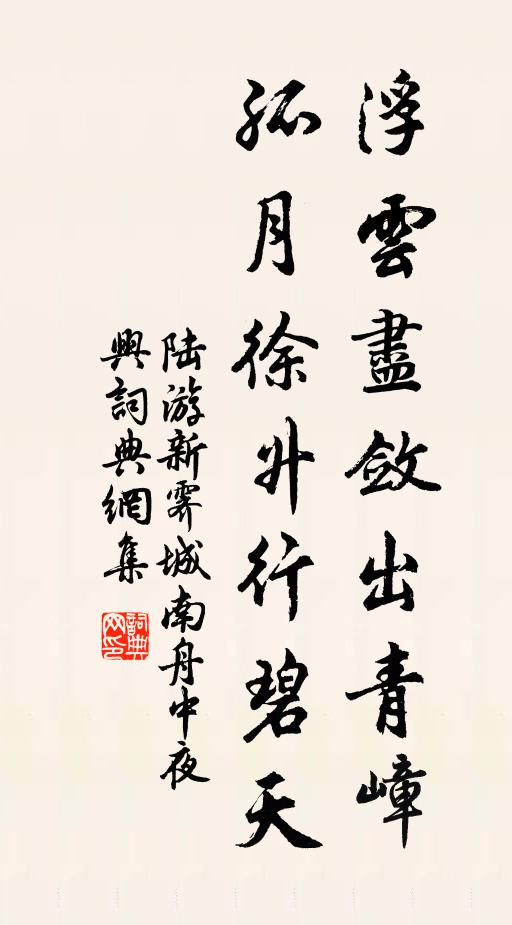 浮雲盡斂出青嶂
孤月徐升行碧天
陆游新霽城南舟中夜
興詞典網集
詞典
网印